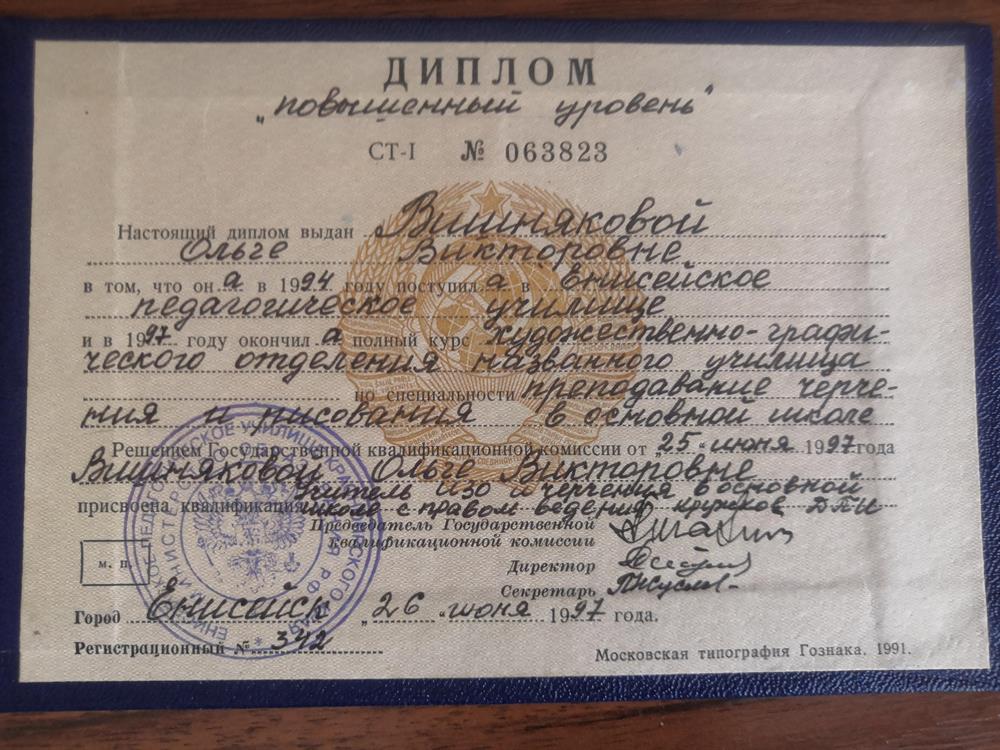 ДИПЛОМ
„повышенный уровень"
СТ-I № 063823
Настоящий диплом выдан Вишняковой
Ольге Викторовне
в том, что он а в 1994 году поступил а в Енисейское
педагогическое училище
и в 1997 году окончил а полный курс художественно-графи-
ческого отделения названного училища
по специальности преподавание черче-
ния и рисования в основной школе
Решением Государственной квалификационной комиссии от „25" июня 1997 года
Вишняковой Ольге Викторовне
учитель ИЗО и черчения в основной
присвоена квалификация школе с правом ведения кружков ДПИ
Председатель Государственной
Квалификационной комиссии
Директор
Секретарь
м. п.
Город Енисейск „26" июня 1997 года.
Регистрационный № 342
Московская типография Гознака. 1991.